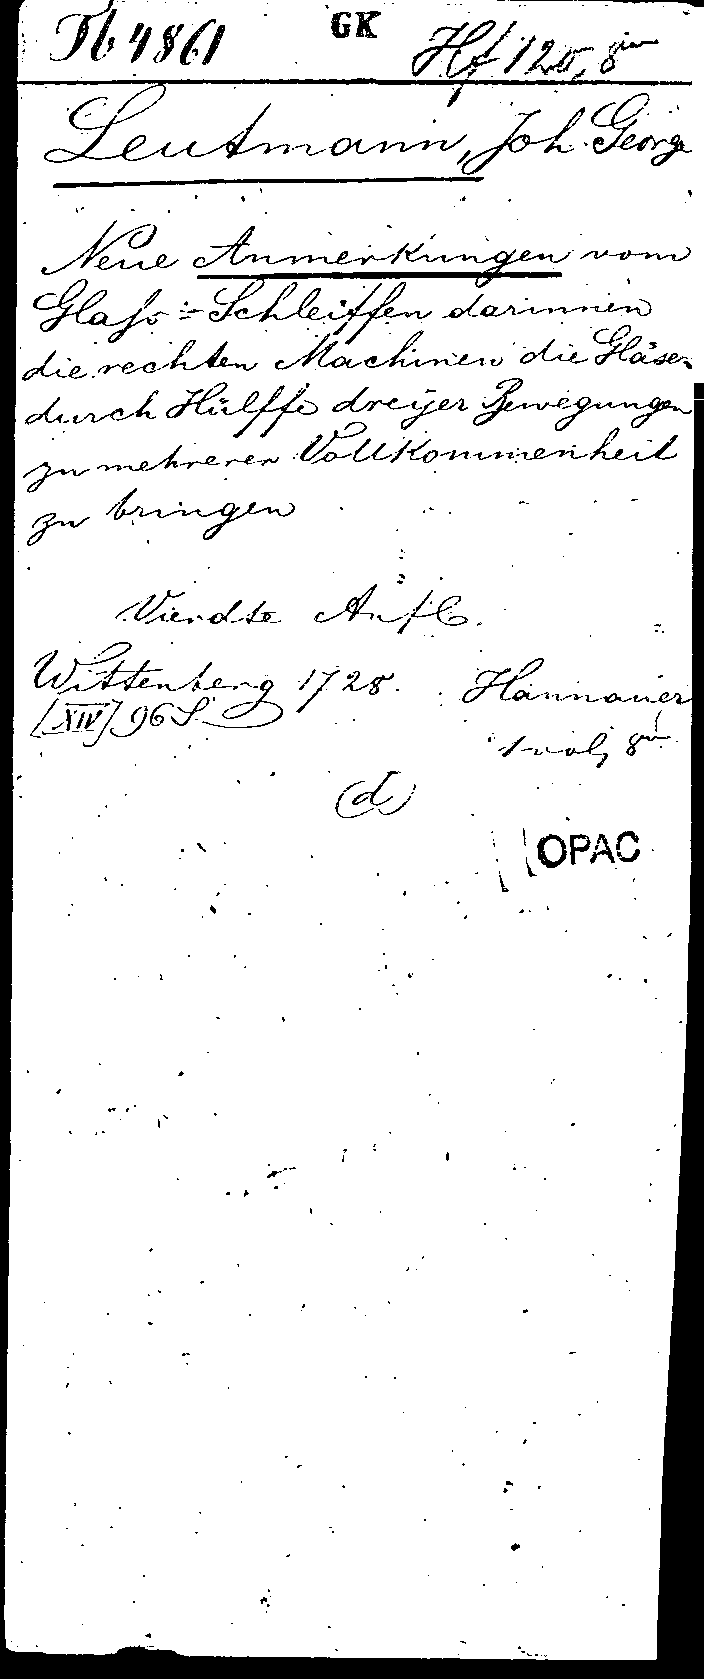 Tb 4861 GK Hf 120, 8vo
Leutmann, Joh. Georg
Neue Anmerkungen vom
Glaß-Schleiffen darinnen
die rechten Machinen die Gläser
durch Hülffe dreyer Bewegungen
zu mehrerer Vollkommenheit
zu bringen
Vierdte Aufl.
Wittenberg 1728. Hannauer
[XIV] 96 S. 1 vol, 8vo
(d)
OPAC